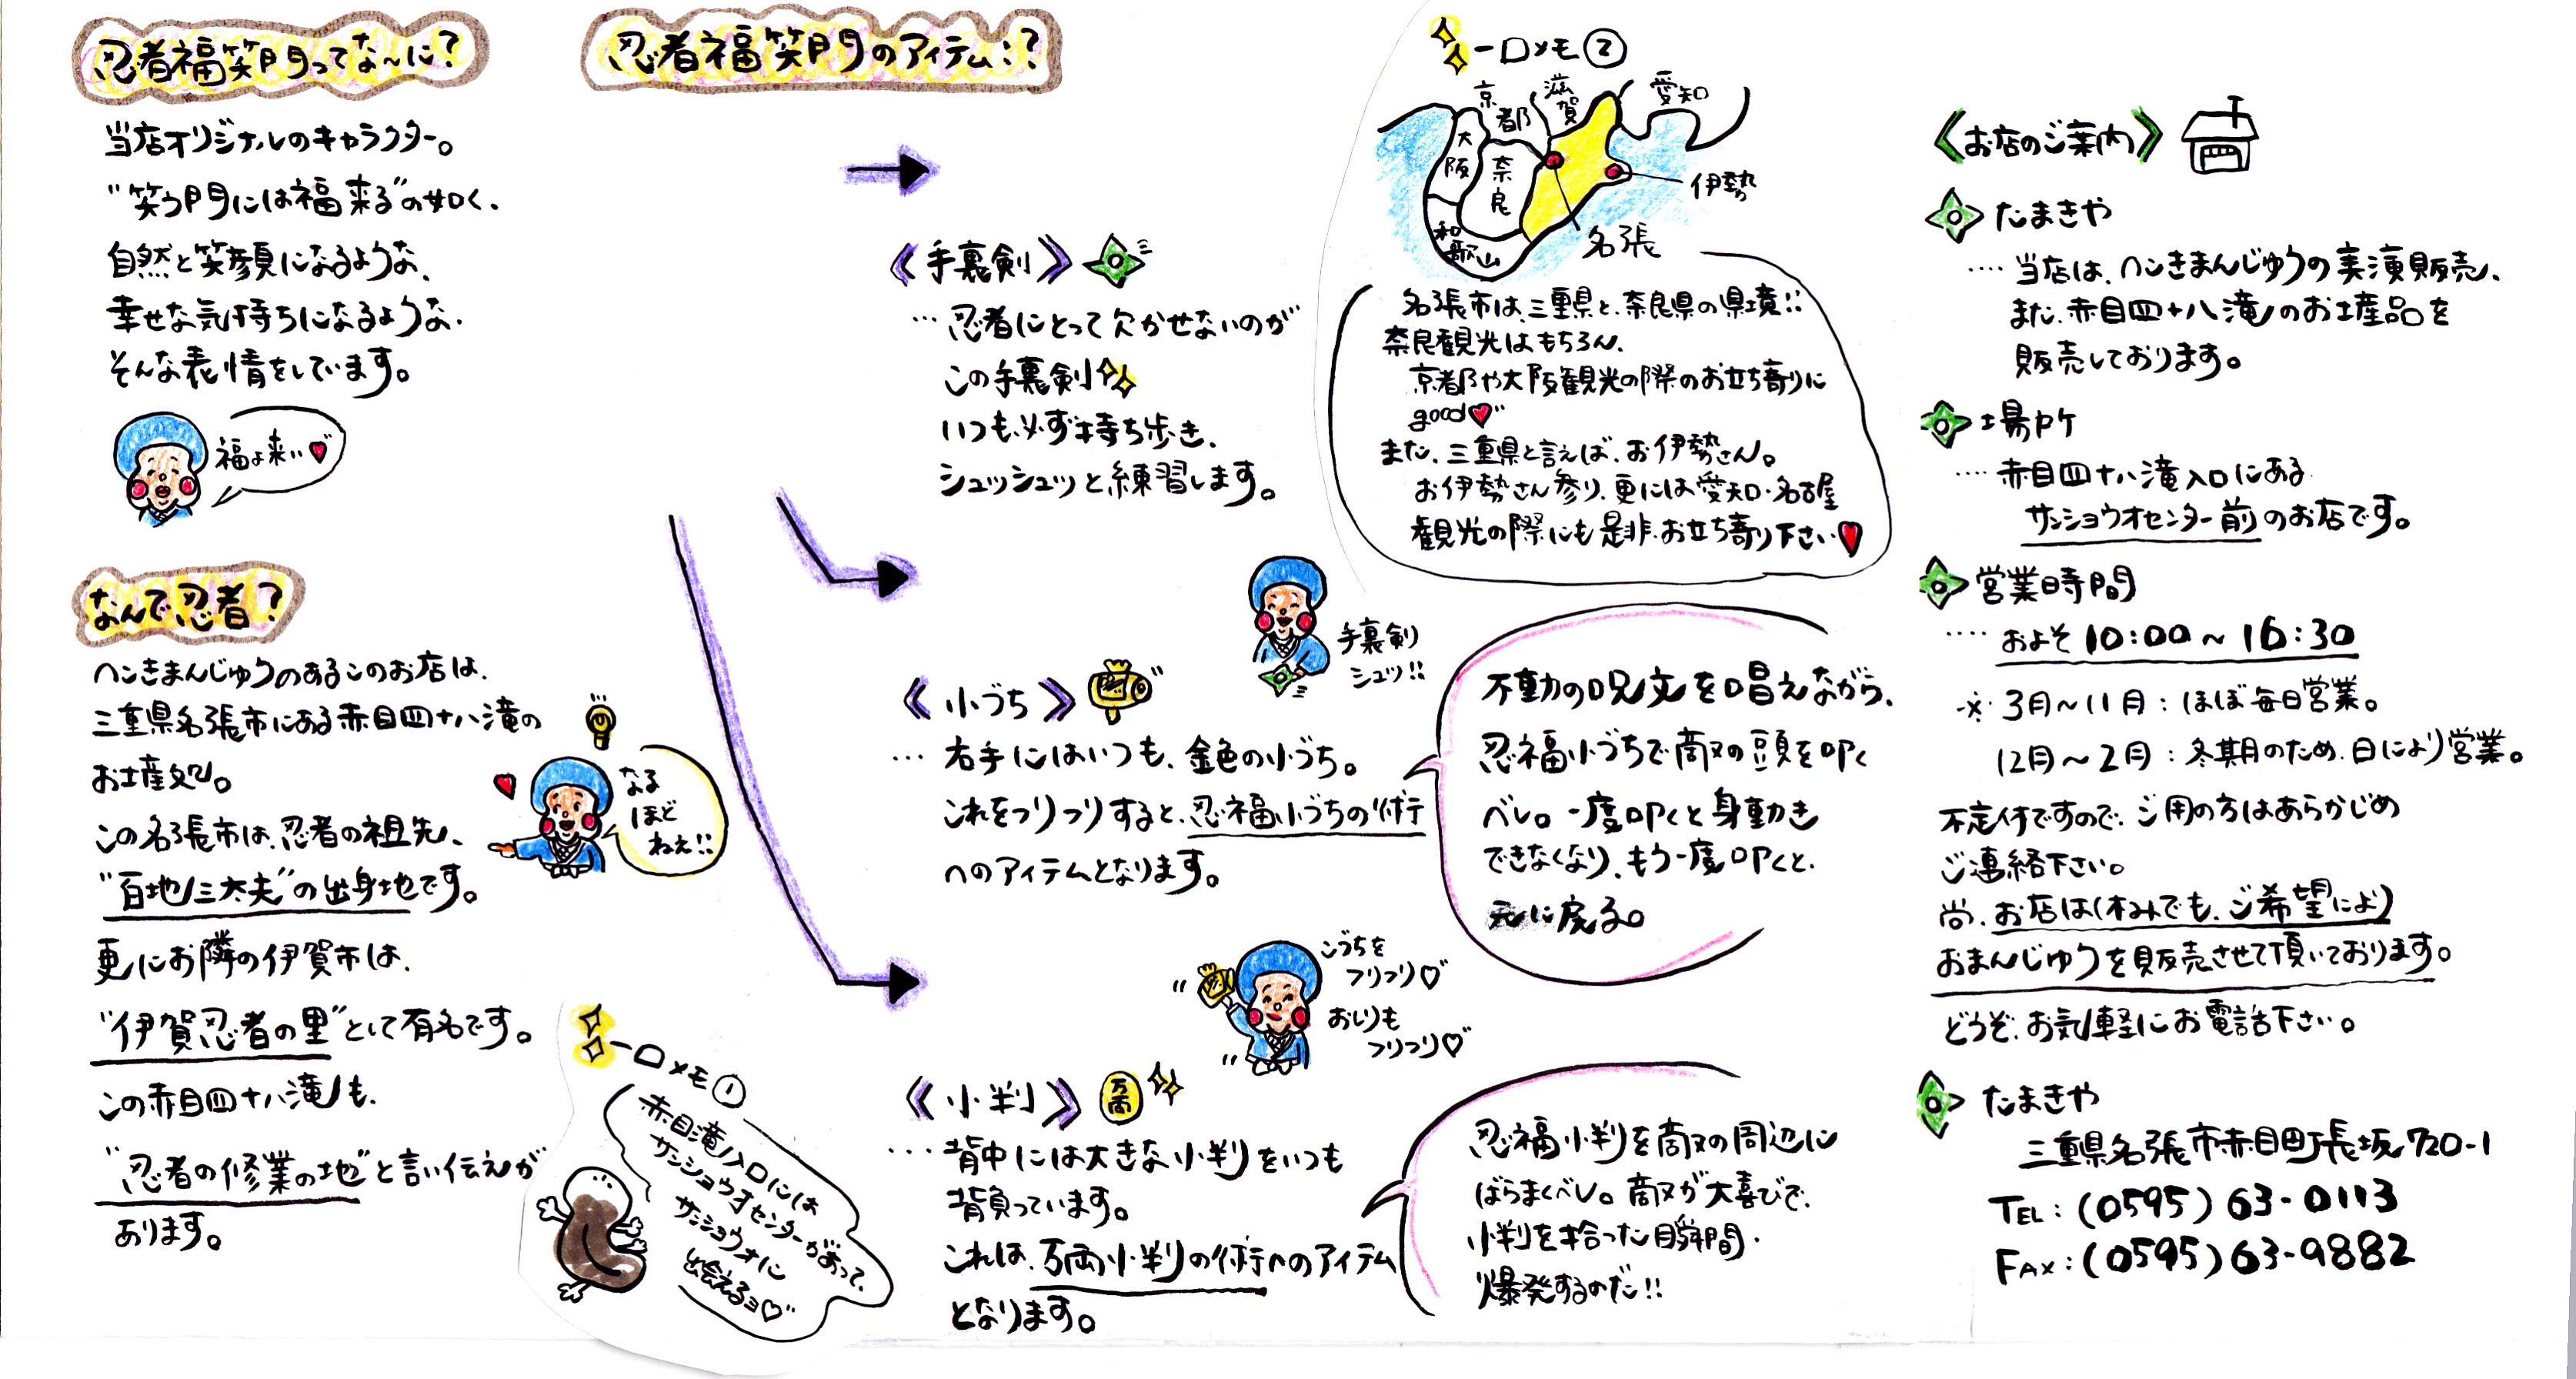 忍者福笑門ってな〜に?
当店オリジナルのキャラクター。
"笑う門には福来る"の如く、
自然と笑顔になるような、
幸せな気持ちになるような、
そんな表情をしています。
福よ来い
なんで忍者?
へこきまんじゅうのあるこのお店は、
三重県名張市にある赤目四十八滝の
お土産処。
この名張市は、忍者の祖先、
"百地三太夫"の出身地です。
更にお隣の伊賀市は、
"伊賀忍者の里"として有名です。
この赤目四十八滝も、
"忍者の修業の地"と言い伝えが
あります。
なる
ほど
ねぇ!!
一口メモ①
赤目滝入口には
サンショウオセンターがあって、
サンショウオに
出会えるヨ♡
忍者福笑門のアイテム:?
《手裏剣》
…忍者にとって欠かせないのが
この手裏剣
いつも必ず持ち歩き、
シュッシュッと練習します。
手裏剣
シュッ!!
《小づち》
…右手にはいつも、金色の小づち。
これをフリフリすると、忍福小づちの術
へのアイテムとなります。
不動の呪文を唱えながら、
忍福小づちで敵の頭を叩く
べし。一度叩くと身動き
できなくなり、もう一度叩くと、
元に戻る。
こづちを
フリフリ♡
おしりも
フリフリ♡
《小判》
万両
…背中には大きな小判をいつも
背負っています。
これは、万両小判の術へのアイテム
となります。
忍福小判を敵の周辺に
ばらまくべし。敵が大喜びで、
小判を拾った瞬間、
爆発するのだ!!
一口メモ②
京都
滋賀
愛知
大阪
奈良
和歌山
伊勢
名張
名張市は、三重県と、奈良県の県境!!
奈良観光はもちろん、
京都や大阪観光の際のお立ち寄りに
good♥
また、三重県と言えば、お伊勢さん。
お伊勢さん参り、更には愛知・名古屋
観光の際にも是非、お立ち寄り下さい♥
《お店のご案内》
たまきや
‥‥当店は、へこきまんじゅうの実演販売、
また、赤目四十八滝のお土産品を
販売しております。
場所
‥‥赤目四十八滝入口にある
サンショウオセンター前のお店です。
営業時間
‥‥およそ10:00〜16:30
※3月〜11月:ほぼ毎日営業。
12月〜2月:冬期のため、日により営業。
不定休ですので、ご用の方はあらかじめ
ご連絡下さい。
尚、お店は休みでも、ご希望により
おまんじゅうを販売させて頂いております。
どうぞ、お気軽にお電話下さい。
たまきや
三重県名張市赤目町長坂720-1
TEL:(0595)63-0113
FAX:(0595)63-9882